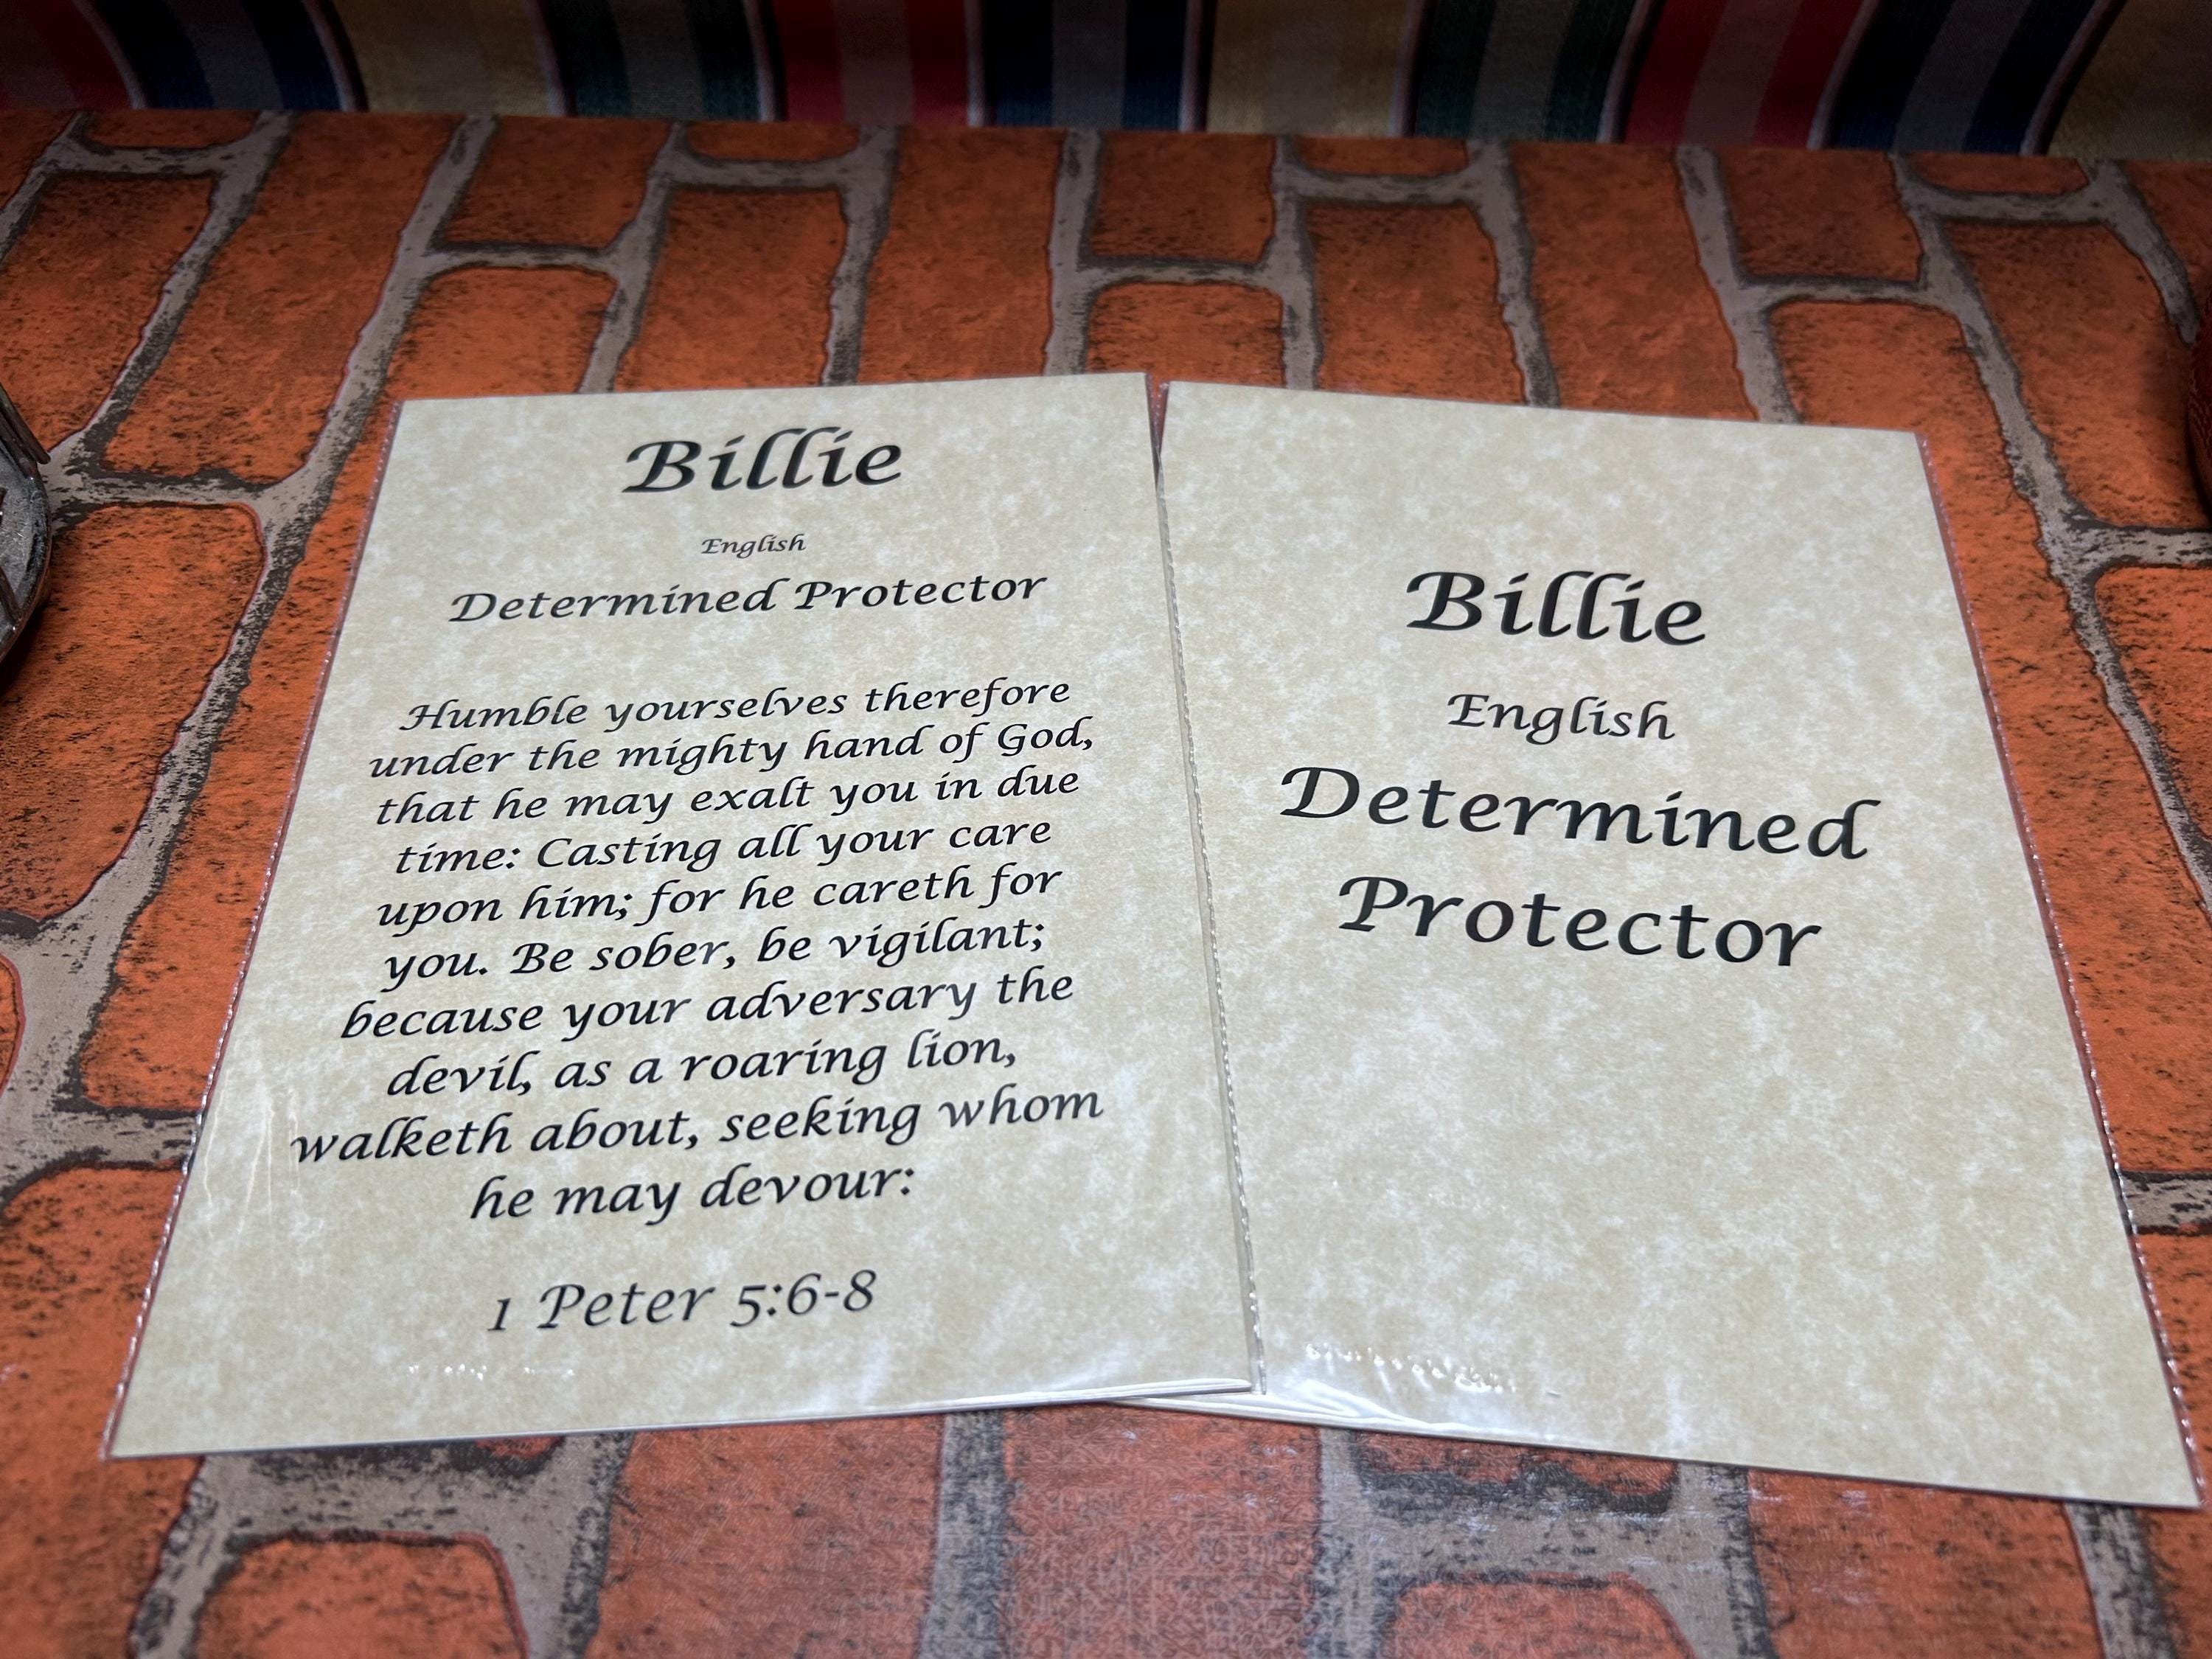 Billie
English
Determined Protector
Humble yourselves therefore
under the mighty hand of God,
that he may exalt you in due
time: Casting all your care
upon him; for he careth for
you. Be sober, be vigilant;
because your adversary the
devil, as a roaring lion,
walketh about, seeking whom
he may devour:
1 Peter 5:6-8
Billie
English
Determined
Protector